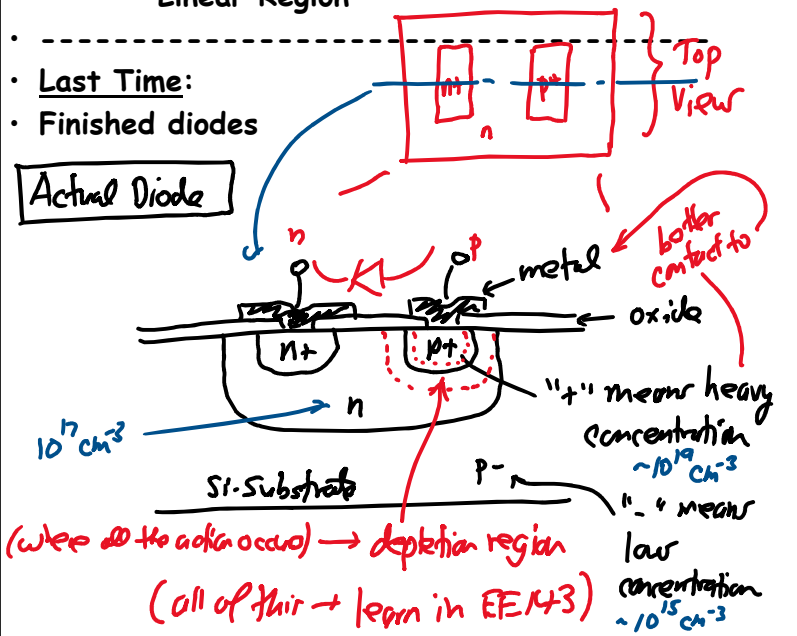 Linear Region
Last Time:
Finished diodes
Actual Diode
n+
p+
n
Top
View
n
p
metal
better
contact to
oxide
n+
p+
n
10^17 cm^-3
"+" means heavy
concentration
~10^19 cm^-3
Si-Substrate
p-
"-" means
low
concentration
~10^15 cm^-3
(where all the action occurs) → depletion region
(all of this → learn in EE143)